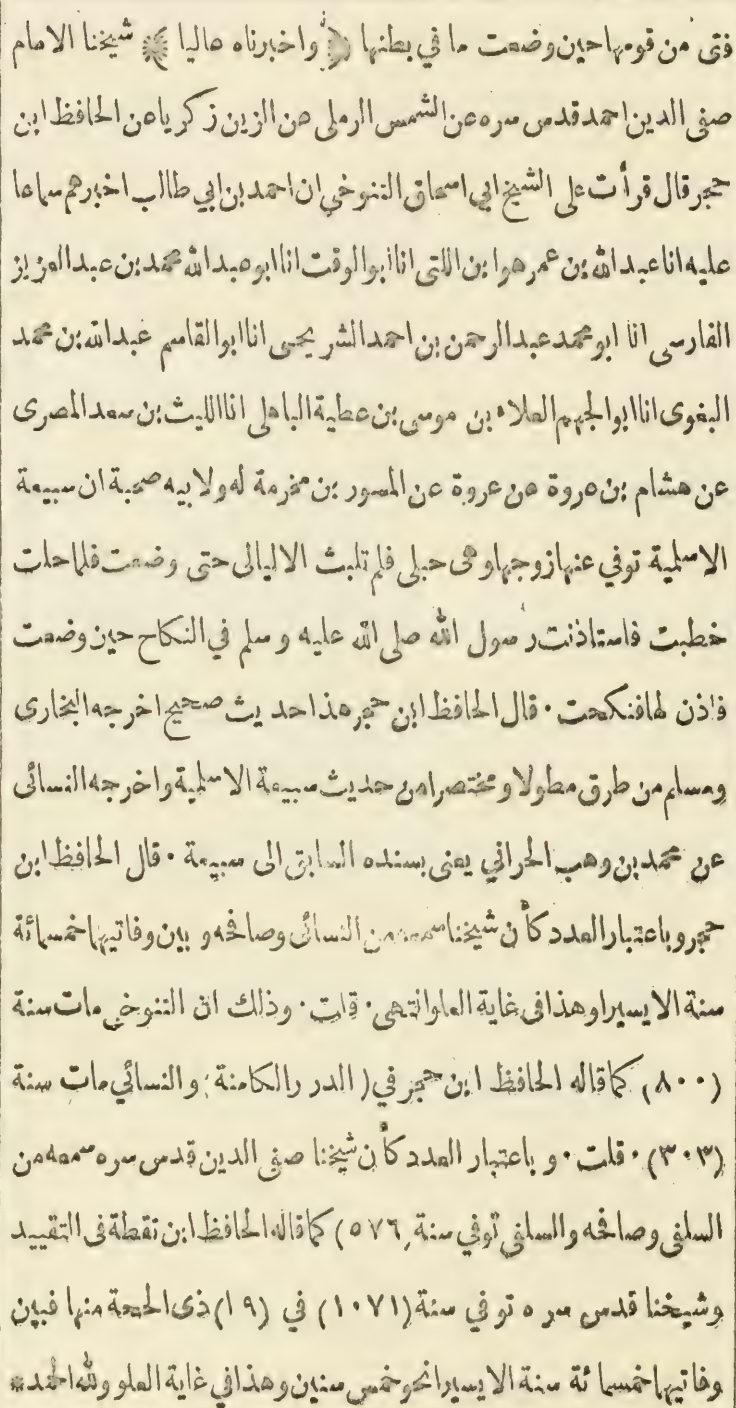 فتى من قومها حين وضعت ما في بطنها ﴿ واخبرناه عاليا ﴾ شيخنا الامام
صفى الدين احمد قدس سره عن الشمس الرملى عن الزين زكريا عن الحافظ ابن
حجر قال قرأت على الشيخ ابى اسحاق التنوخي ان احمد بن ابي طالب اخبرهم سماعا
عليه انا عبد الله بن عمر هو ابن اللتى انا ابو الوقت انا ابو عبد الله محمد بن عبد العزيز
الفارسى انا ابو محمد عبد الرحمن بن احمد الشريحى انا ابو القاسم عبد الله بن محمد
البغوى انا ابو الجهم العلاء بن موسى بن عطية الباهلى انا الليث بن سعد المصرى
عن هشام بن عروة عن عروة عن المسور بن مخرمة له ولابيه صحبة ان سبيعة
الاسلمية توفي عنها زوجها وهى حبلى فلم تلبث الا ليالى حتى وضعت فلما حلت
خطبت فاستاذنت رسول الله صلى الله عليه و سلم في النكاح حين وضعت
فاذن لها فنكحت · قال الحافظ ابن حجر هذا حديث صحيح اخرجه البخارى
ومسلم من طرق مطولا و مختصرا من حديث سبيعة الاسلمية واخرجه النسائى
عن محمد بن وهب الحراني يعنى بسنده السابق الى سبيعة · قال الحافظ ابن
حجر و باعتبار العدد كأن شيخنا سمعه من النسائى وصافحه و بين وفاتيهما خمسمائة
سنة الا يسيرا وهذا فى غاية العلو انتهى · قلت · وذلك ان التنوخي مات سنة
(٨٠٠) كما قاله الحافظ ابن حجر في (الدرر الكامنة) والنسائي مات سنة
(٣٠٣) · قلت · و باعتبار العدد كأن شيخنا صفى الدين قدس سره سمعه من
السلفى وصافحه والسلفى توفي سنة (٥٧٦) كما قاله الحافظ ابن نقطة فى التقييد
وشيخنا قدس سره توفي سنة (١٠٧١) في (١٩) ذى الحجة منها فبين
وفاتيهما خمسمائة سنة الا يسيرا نحو خمس سنين وهذا في غاية العلو ولله الحمد *